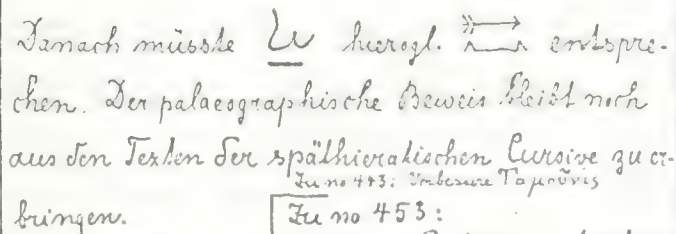 Danach müsste hierogl. entspre-
chen. Der palaeographische Beweis bleibt noch
aus den Texten der späthieratischen Cursive zu er-
Zu no 443: Verbessere Ταμοῦνις
bringen. Zu no 453: